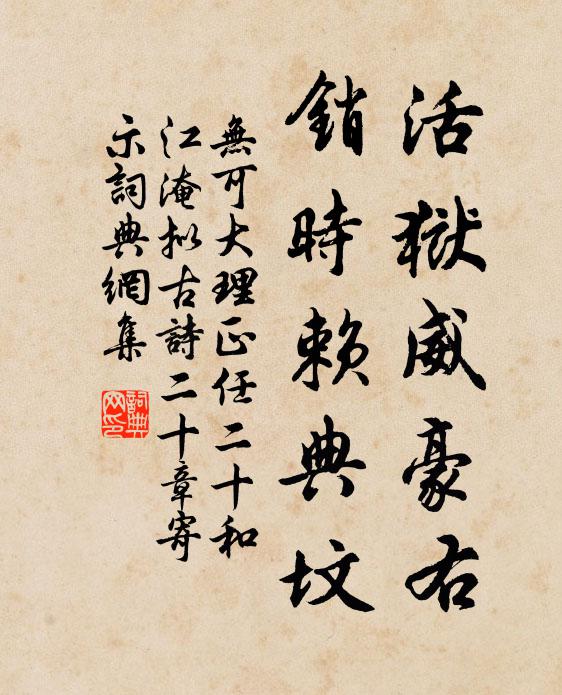 活獄威豪右
銷時賴典墳
無可大理正任二十和
江淹拟古詩二十章寄
示詞典網集
詞典网印